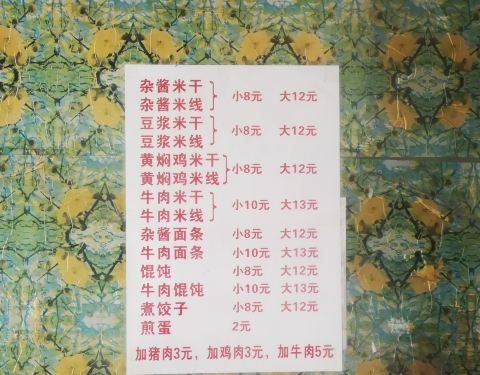 杂酱米干
杂酱米线 小8元 大12元
豆浆米干
豆浆米线 小8元 大12元
黄焖鸡米干
黄焖鸡米线 小8元 大12元
牛肉米干
牛肉米线 小10元 大13元
杂酱面条 小8元 大12元
牛肉面条 小10元 大13元
馄饨 小8元 大12元
牛肉馄饨 小10元 大13元
煮饺子 小8元 大12元
煎蛋 2元
加猪肉3元，加鸡肉3元，加牛肉5元